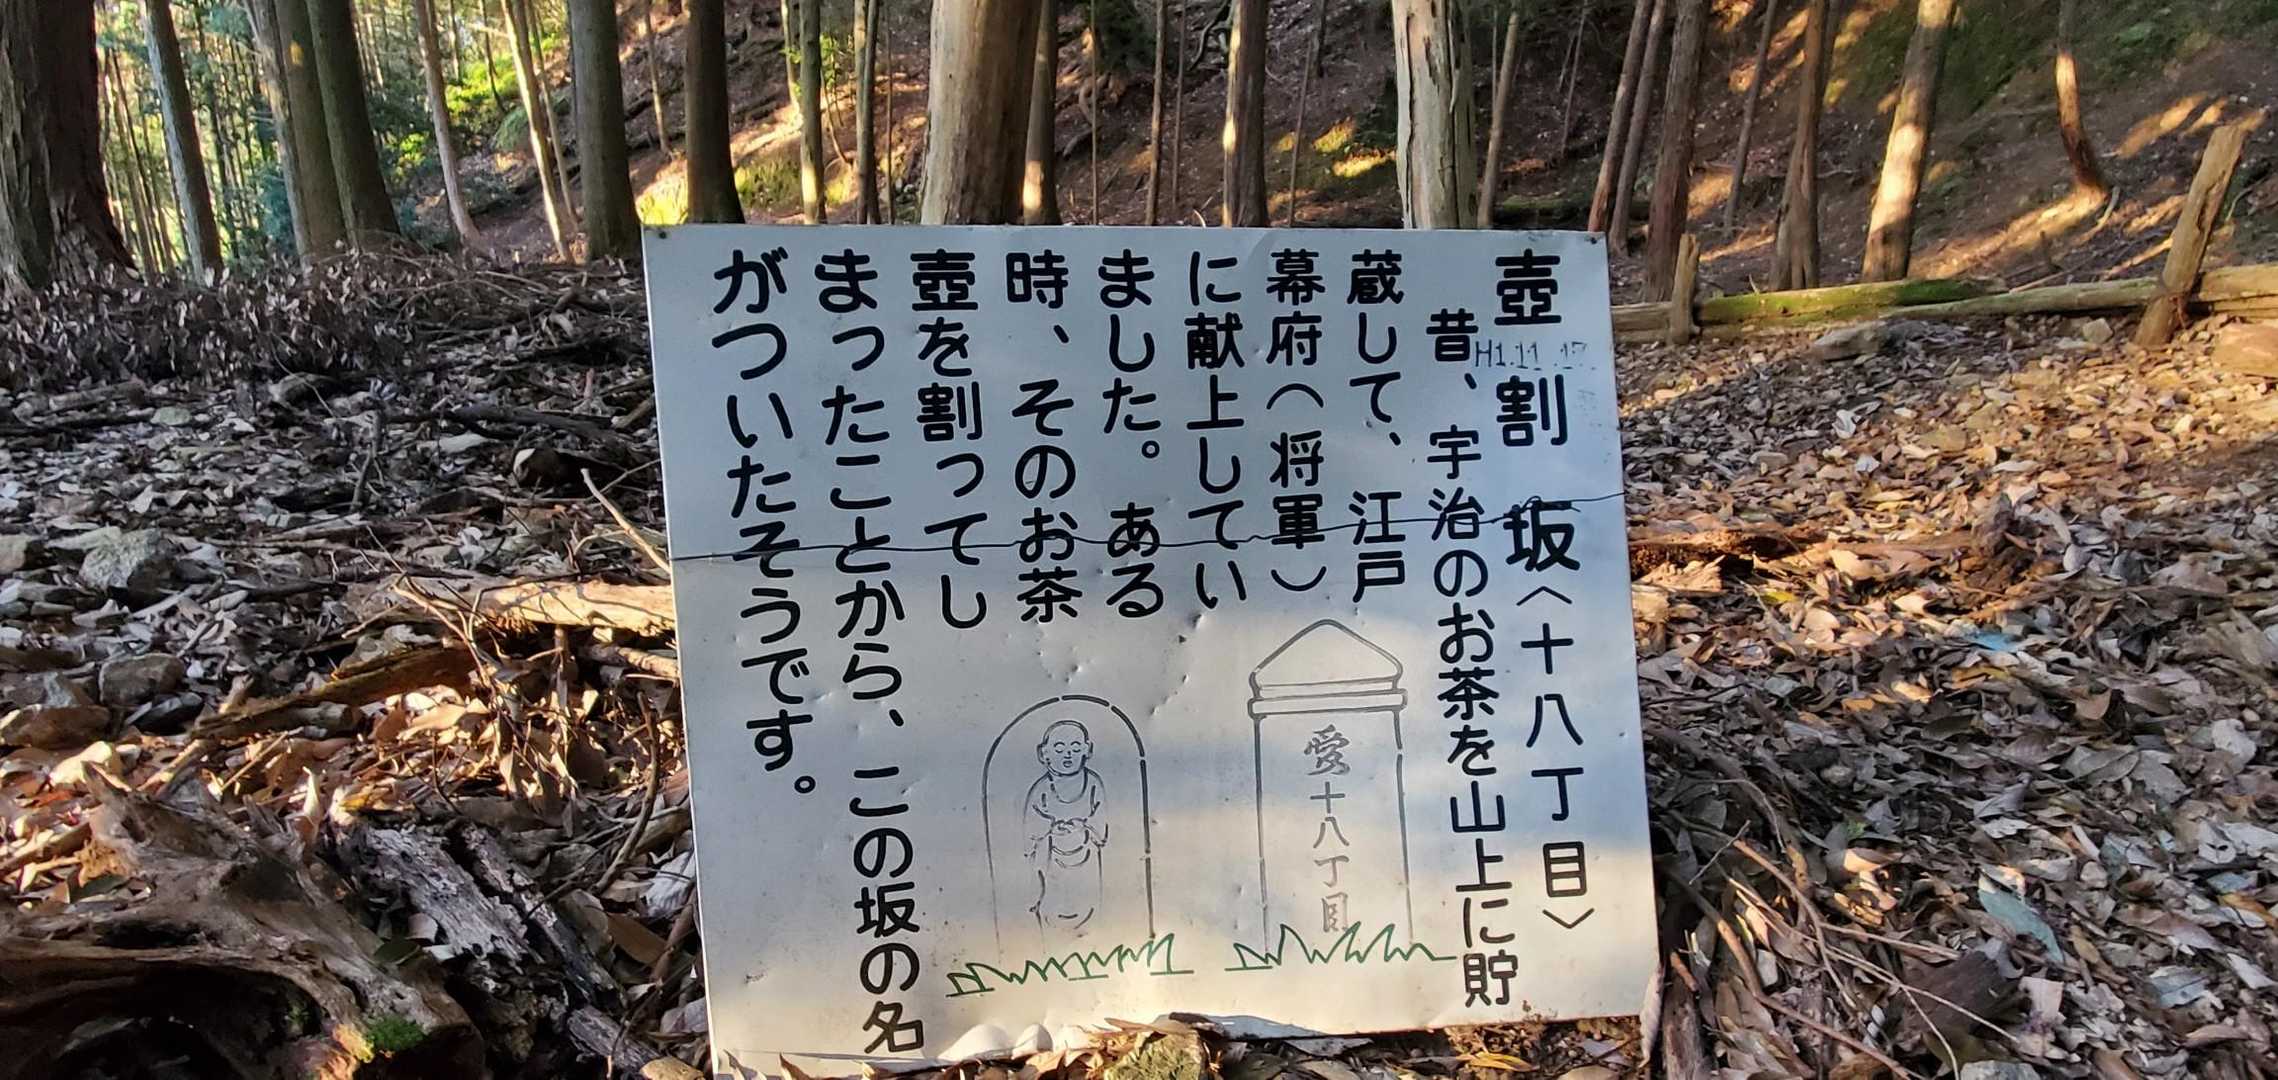 壺割坂〈十八丁目〉
昔、宇治のお茶を山上に貯
蔵して、江戸
幕府(将軍)
に献上してい
ました。ある
時、そのお茶
壺を割ってし
まったことから、この坂の名
がついたそうです。
愛十八丁目